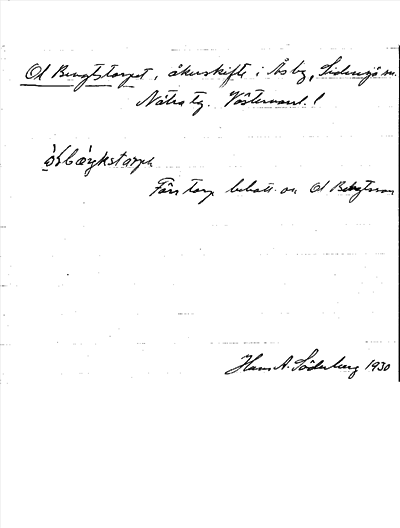 Ol Bengtstorpet, åkerskifte i Åsby, Sidensjö sn.
Nätra tg. Västernorrl. l
Förr torp bebott av Ol Bengtsson
Hans A. Söderberg 1930